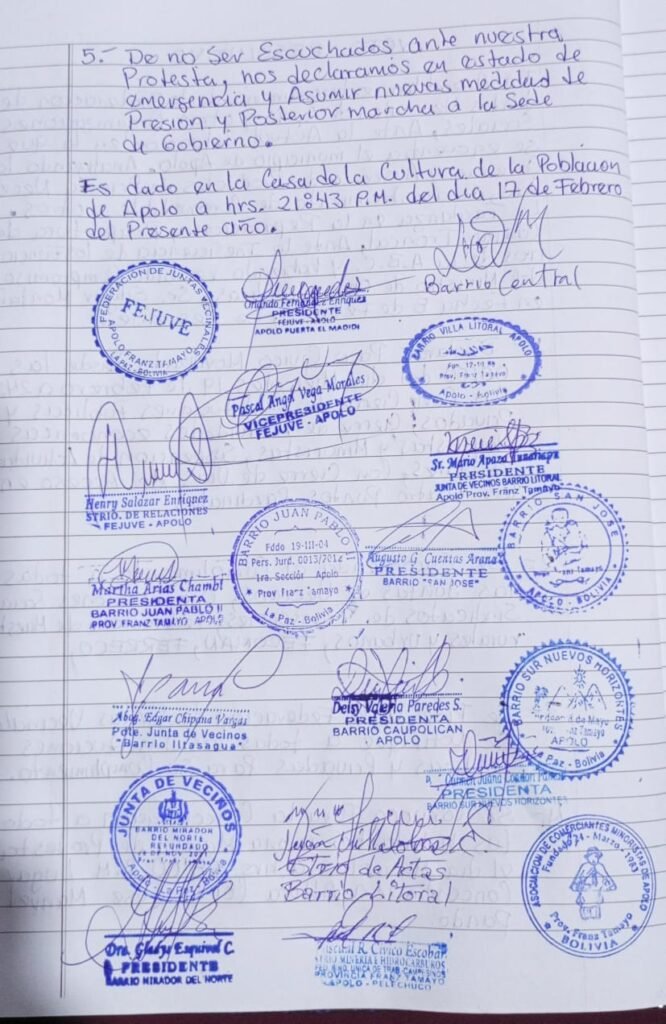 5.- De no Ser Escuchados ante nuestra
Protesta, nos declaramos en estado de
emergencia y Asumir nuevas medidas de
Presion y Posterior marcha a la Sede
de Gobierno.
Es dado en la Casa de la Cultura de la Poblacion
de Apolo a hrs. 21:43 P.M. del dia 17 de Febrero
del Presente año.
Barrio Central
FEDERACIÓN DE JUNTAS VECINALES
FEJUVE
APOLO FRANZ TAMAYO
LA PAZ - BOLIVIA
Orlando Fernandez Enriquez
PRESIDENTE
FEJUVE - APOLO
APOLO PUERTA EL MADIDI
BARRIO VILLA LITORAL APOLO
Prov. Franz Tamayo
Apolo - Bolivia
Pascal Angel Vega Morales
VICEPRESIDENTE
FEJUVE - APOLO
Henry Salazar Enriquez
STRIO. DE RELACIONES
FEJUVE - APOLO
Sr. Mario Apaza
PRESIDENTE
JUNTA DE VECINOS BARRIO LITORAL
Apolo Prov. Franz Tamayo
BARRIO JUAN PABLO II
Fddo 19-III-04
Pers. Jurd. 0013/2012
1ra. Sección Apolo
Prov Franz Tamayo
La Paz - Bolivia
Martha Arias Chambi
PRESIDENTA
BARRIO JUAN PABLO II
PROV FRANZ TAMAYO APOLO
Augusto G Cuentas Arana
PRESIDENTE
BARRIO "SAN JOSE"
BARRIO SAN JOSE
APOLO - BOLIVIA
Abog. Edgar Chipana Vargas
Pdte. Junta de Vecinos
"Barrio Iirasagua"
Deisy Valeria Paredes S.
PRESIDENTA
BARRIO CAUPOLICAN
APOLO
BARRIO SUR NUEVOS HORIZONTES
APOLO
La Paz - Bolivia
Carmen Juana Condori
PRESIDENTA
BARRIO SUR NUEVOS HORIZONTES
JUNTA DE VECINOS
BARRIO MIRADOR
DEL NORTE
REFUNDADO
Strio de Actas
Barrio Litoral
ASOCIACION DE COMERCIANTES MINORISTAS DE APOLO
Prov. Franz Tamayo
BOLIVIA
Dra. Gladys Esquivel C.
PRESIDENTE
BARRIO MIRADOR DEL NORTE
R. Civico Escobar
STRIO MINERIA E HIDROCARBUROS
PROVINCIA FRANZ TAMAYO
APOLO - PELECHUCO